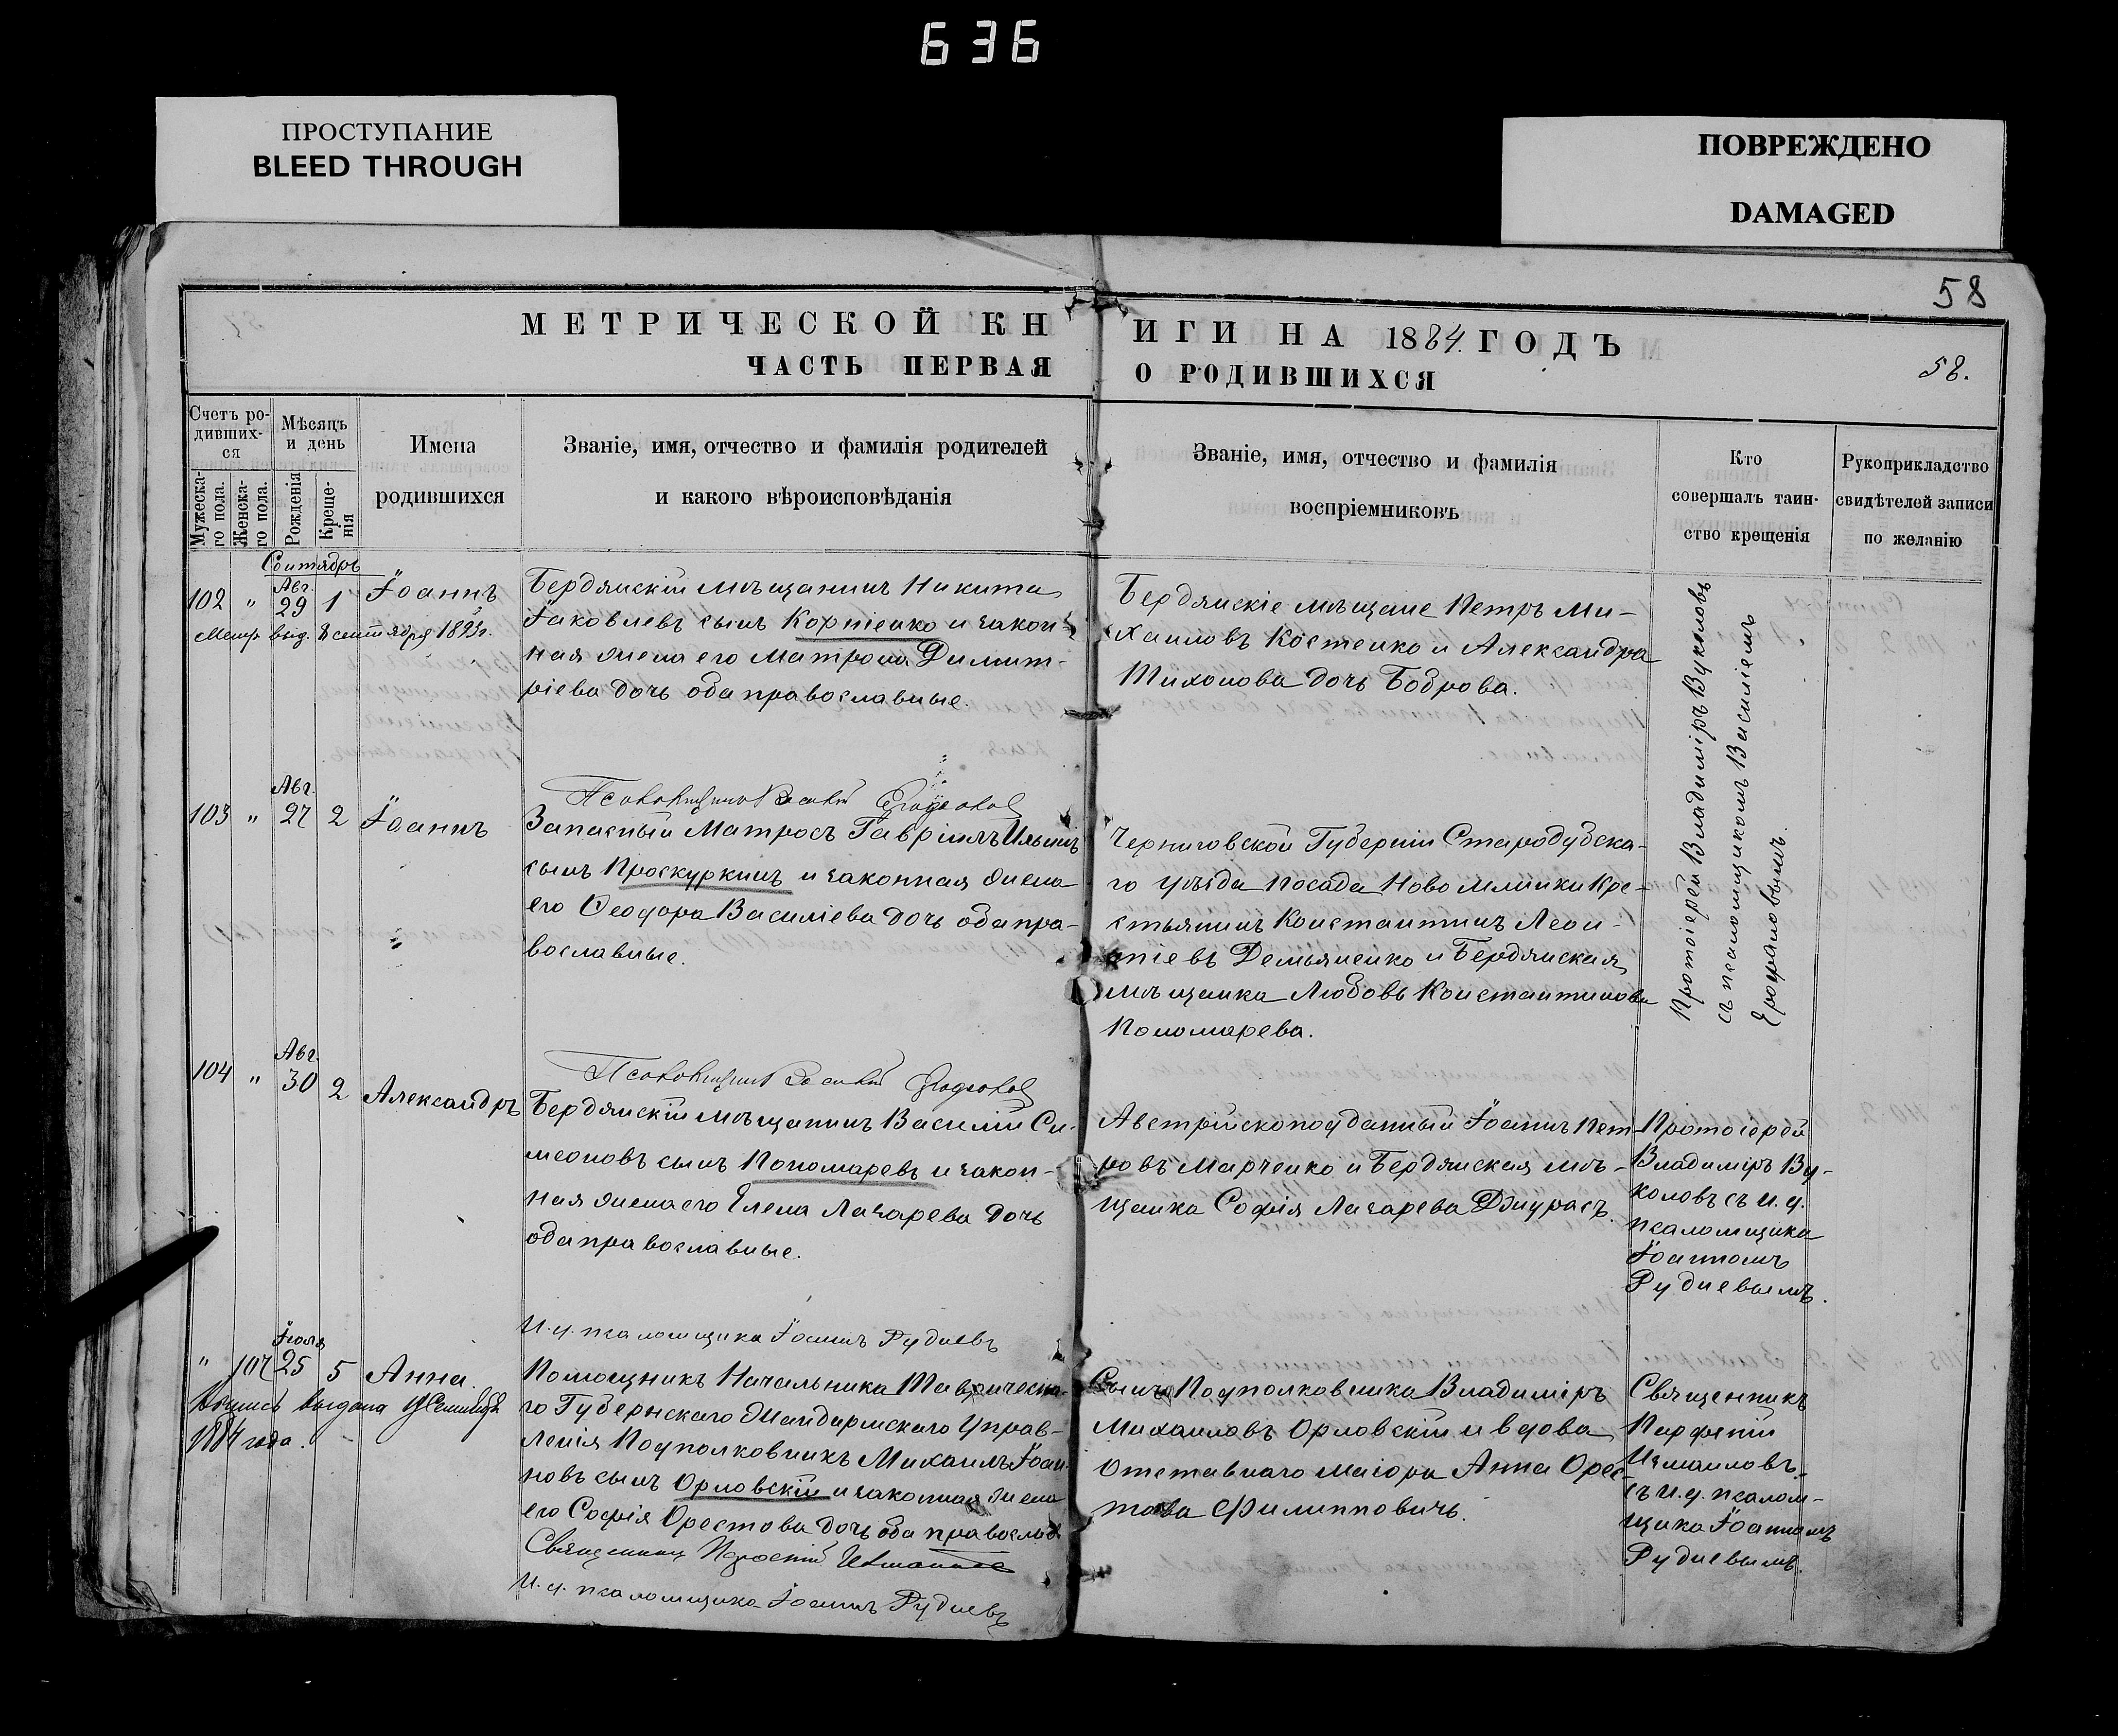 636
ПРОСТУПАНИЕ
BLEED THROUGH
ПОВРЕЖДЕНО
DAMAGED
58
МЕТРИЧЕСКОЙ КН
ИГИ НА 1884 ГОДЪ
ЧАСТЬ ПЕРВАЯ
О РОДИВШИХСЯ
58.
Счетъ ро-
дивших-
ся
Мужеска-
го пола.
Женска-
го пола.
Мѣсяцъ
и день
Рожденія
Креще-
нія
Имена
родившихся
Званіе, имя, отчество и фамилія родителей
и какого вѣроисповѣданія
Званіе, имя, отчество и фамилія
воспріемниковъ
Кто
совершалъ таин-
ство крещенія
Рукоприкладство
свидѣтелей записи
по желанію
Сентябрь
102 " Авг. 29 1 Іоаннъ
Метр. выд. 8 сентября 1893г.
Бердянскій мѣщанинъ Никита
Іаковлевъ сынъ Корніенко и закон-
ная жена его Матрона Димит-
ріева дочь оба православные.
Бердянскіе мѣщане Петръ Ми-
хаиловъ Костенко и Александра
Тихонова дочь Боброва.
Протоіерей Владиміръ Вуколовъ
съ псаломщикомъ Василіемъ
Ерофаловымъ.
Псаломщикъ Василій
103 " Авг. 27 2 Іоаннъ
Запасный Матросъ Гавріилъ Ильинъ
сынъ Проскуркинъ и законная жена
его Ѳеодора Василіева дочь оба пра-
вославные.
Черниговской Губерніи Стародубска-
го уѣзда посада Ново Млинки Кре-
стьянинъ Константинъ Леон-
тіевъ Демьяненко и Бердянская
мѣщанка Любовь Константинова
Пономарева.
Псаломщикъ Василій
104 " Авг. 30 2 Александръ
Бердянскій мѣщанинъ Василій Си-
меоновъ сынъ Пономаревъ и закон-
ная жена его Елена Лазарева дочь
оба православные.
Австрійскоподданный Іоаннъ Пет-
ровъ Марченко и Бердянская мѣ-
щанка Софія Лазарева Джурасъ.
Протоіерей
Владиміръ Ву-
коловъ съ и. д.
псаломщика
Іоанномъ
Рудневымъ.
И. д. псаломщика Іоаннъ Рудневъ
" 107 Іюля 25 5 Анна.
выдана
1884 года.
Помощникъ Начальника Таврическа-
го Губернскаго Жандармскаго Управ-
ленія Подполковникъ Михаилъ Іоан-
новъ сынъ Орловскій и законная жена
его Софія Орестова дочь оба православ.
Сынъ Подполковника Владиміръ
Михаиловъ Орловскій и вдова
отставнаго маіора Анна Орес-
това Филипповичъ.
Священникъ
Парфеній
Измаиловъ
съ и. д. псалом-
щика Іоанномъ
Рудневымъ.
Священникъ Парфеній Измаиловъ
И. д. псаломщика Іоаннъ Рудневъ